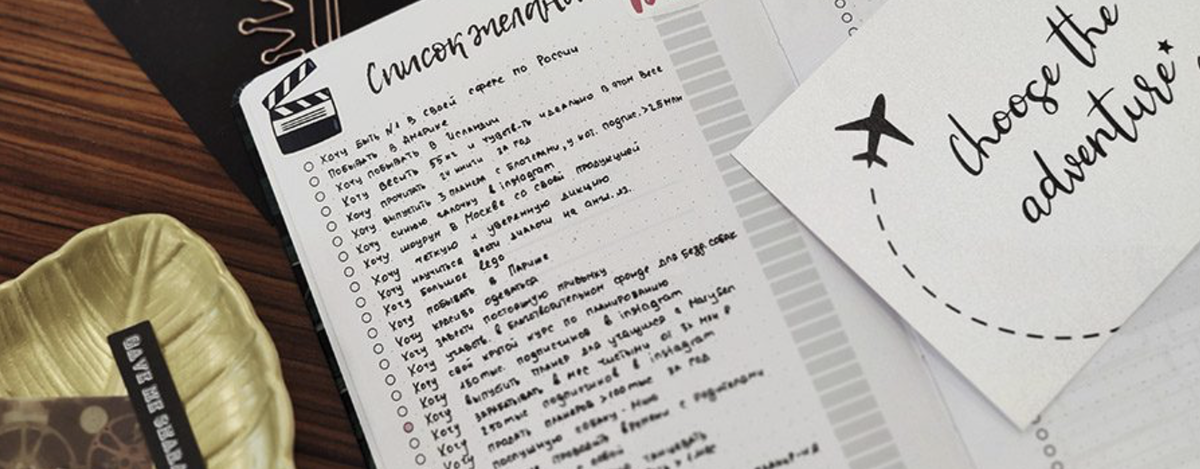 Список желаний
Хочу быть №1 в своей сфере по России
побывать в Америке
Хочу побывать в Исландии
Хочу весить 55кг и чувств-ть идеально в этом весе
Хочу прочитать 24 книги за год
Хочу выпустить 3 планера с блогерами, у кот. подпис. >2.5млн
Хочу синюю галочку в instagram
Хочу шоурум в Москве со своей продукцией
Хочу четкую и уверенную дикцию
Хочу научиться вести диалоги на англ. яз.
Хочу большое lego
Хочу побывать в Париже
Хочу красиво одеваться
Хочу завести постоянную привычку
Хочу участв. в благотворительном фонде для бездо. собак
Хочу свой крутой курс по планированию
Хочу 150тыс. подписчиков в instagram
Хочу выпустить планер для учащихся с
Хочу зарабатывать в мес чистыми от
Хочу 250тыс подписчиков в instagram
Хочу продать планеров > за год
Хочу послушную собаку
Хочу проводить времени с родителями
танцевать
choose the
adventure
SAVE ME